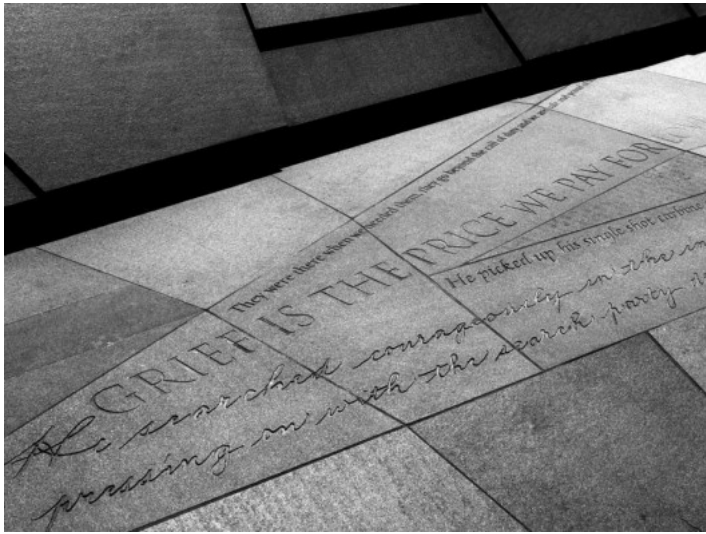 They were there when we needed them, they go beyond the call of duty and
GRIEF IS THE PRICE WE PAY FOR
He picked up his single shot carbine
He searched courageously in the
pressing on with the search party